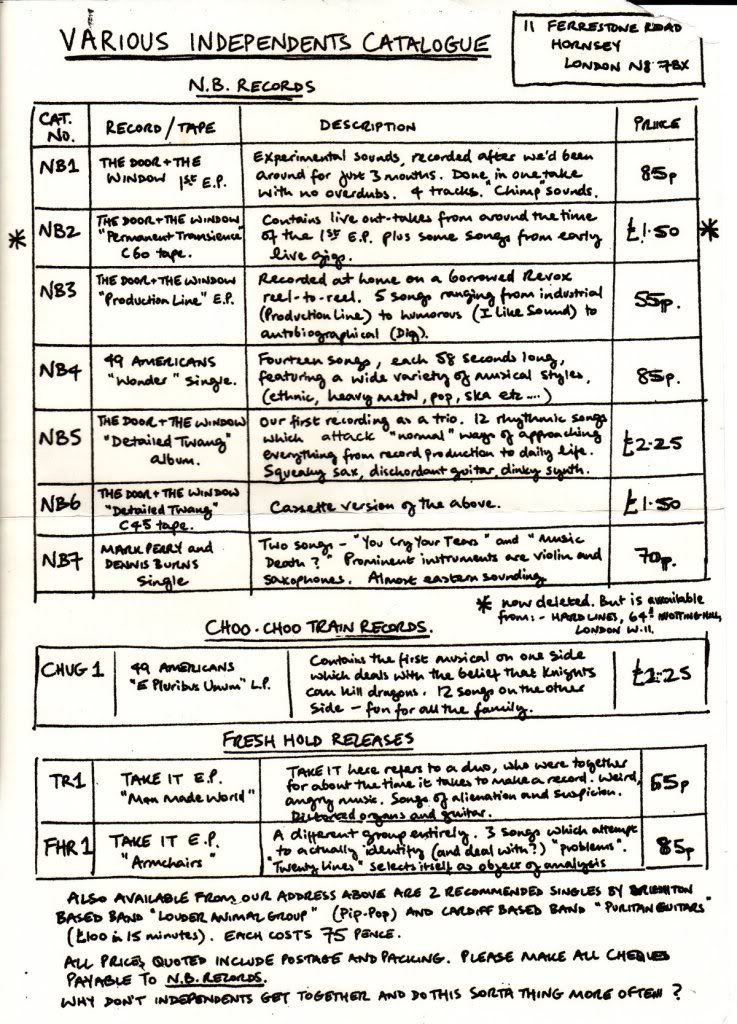 VARIOUS INDEPENDENTS CATALOGUE
11 FERRESTONE ROAD
HORNSEY
LONDON N8 7BX
N.B. RECORDS
CAT. No.
RECORD/TAPE
DESCRIPTION
PRICE
NB1
THE DOOR + THE
WINDOW 1ST E.P.
Experimental sounds, recorded after we'd been
around for just 3 months. Done in one take
with no overdubs. 4 tracks. "Chimp" sounds.
85p
*
NB2
THE DOOR + THE WINDOW
"Permanent Transience"
C60 tape.
Contains live out-takes from around the time
of the 1ST E.P. plus some songs from early
live gigs.
£1.50
*
NB3
THE DOOR + THE WINDOW
"Production Line" E.P.
Recorded at home on a borrowed Revox
reel-to-reel. 5 songs ranging from industrial
(Production Line) to humorous (I Like Sound) to
autobiographical (Dig).
55p.
NB4
49 AMERICANS
"Wonder" Single.
Fourteen songs, each 58 seconds long,
featuring a wide variety of musical styles,
(ethnic, heavy metal, pop, ska etc ....)
85p.
NB5
THE DOOR + THE WINDOW
"Detailed Twang"
album.
Our first recording as a trio. 12 rhythmic songs
which attack "normal" ways of approaching
everything from record production to daily life.
Squeaky sax, dischordant guitar, dinky synth.
£2.25
NB6
THE DOOR + THE WINDOW
"Detailed Twang"
C45 tape.
Cassette version of the above.
£1.50
NB7
MARK PERRY and
DENNIS BURNS
Single
Two songs - "You Cry Your Tears" and "Music
Death?" Prominent instruments are violin and
saxophones. Almost eastern sounding
70p.
* now deleted. But is available
from:- HARD LINES, 64A NOTTING HILL,
LONDON W.11.
CHOO-CHOO TRAIN RECORDS.
CHUG 1
49 AMERICANS
"E Pluribus Unum" L.P.
Contains the first musical on one side
which deals with the belief that Knights
can kill dragons. 12 songs on the other
side - fun for all the family.
£2.25
FRESH HOLD RELEASES
TR1
TAKE IT E.P.
"Man Made World"
TAKE IT here refers to a duo, who were together
for about the time it takes to make a record. Weird,
angry music. Songs of alienation and suspicion.
Distorted organs and guitar.
65p
FHR 1
TAKE IT E.P.
"Armchairs"
A different group entirely. 3 songs which attempt
to actually identify (and deal with?) "problems".
"Twenty Lines" selects itself as object of analysis
85p
ALSO AVAILABLE FROM OUR ADDRESS ABOVE ARE 2 RECOMMENDED SINGLES BY BRIGHTON
BASED BAND "LOUDER ANIMAL GROUP" (Pip-Pop) AND CARDIFF BASED BAND "PURITAN GUITARS"
(£100 in 15 minutes). EACH COSTS 75 PENCE.
ALL PRICES QUOTED INCLUDE POSTAGE AND PACKING. PLEASE MAKE ALL CHEQUES
PAYABLE TO N.B. RECORDS.
WHY DON'T INDEPENDENTS GET TOGETHER AND DO THIS SORTA THING MORE OFTEN?